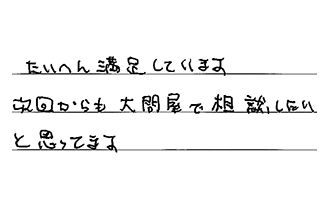 たいへん満足しています
次回からも大問屋で相談したい
と思ってます